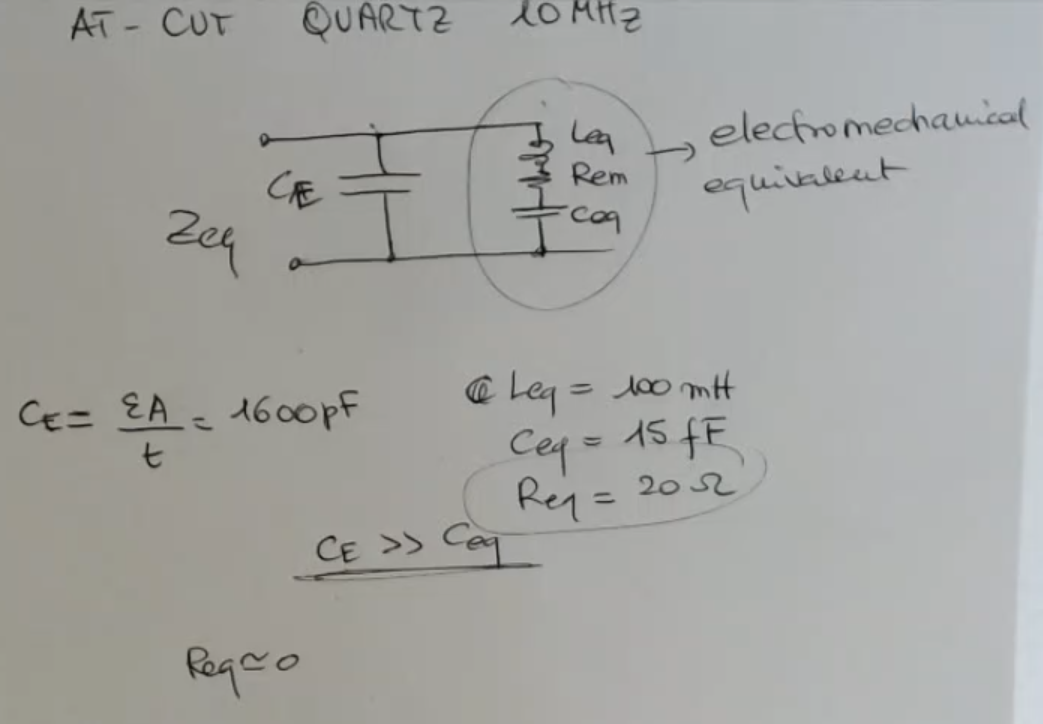 AT - CUT QUARTZ 10 MHz
Leq
→ electromechanical
CE
Rem
equivalent
Ceq
Zeq
CE = εA/t = 1600 pF
Leq = 100 mH
Ceq = 15 fF
Req = 20 Ω
CE >> Ceq
Req ≃ 0